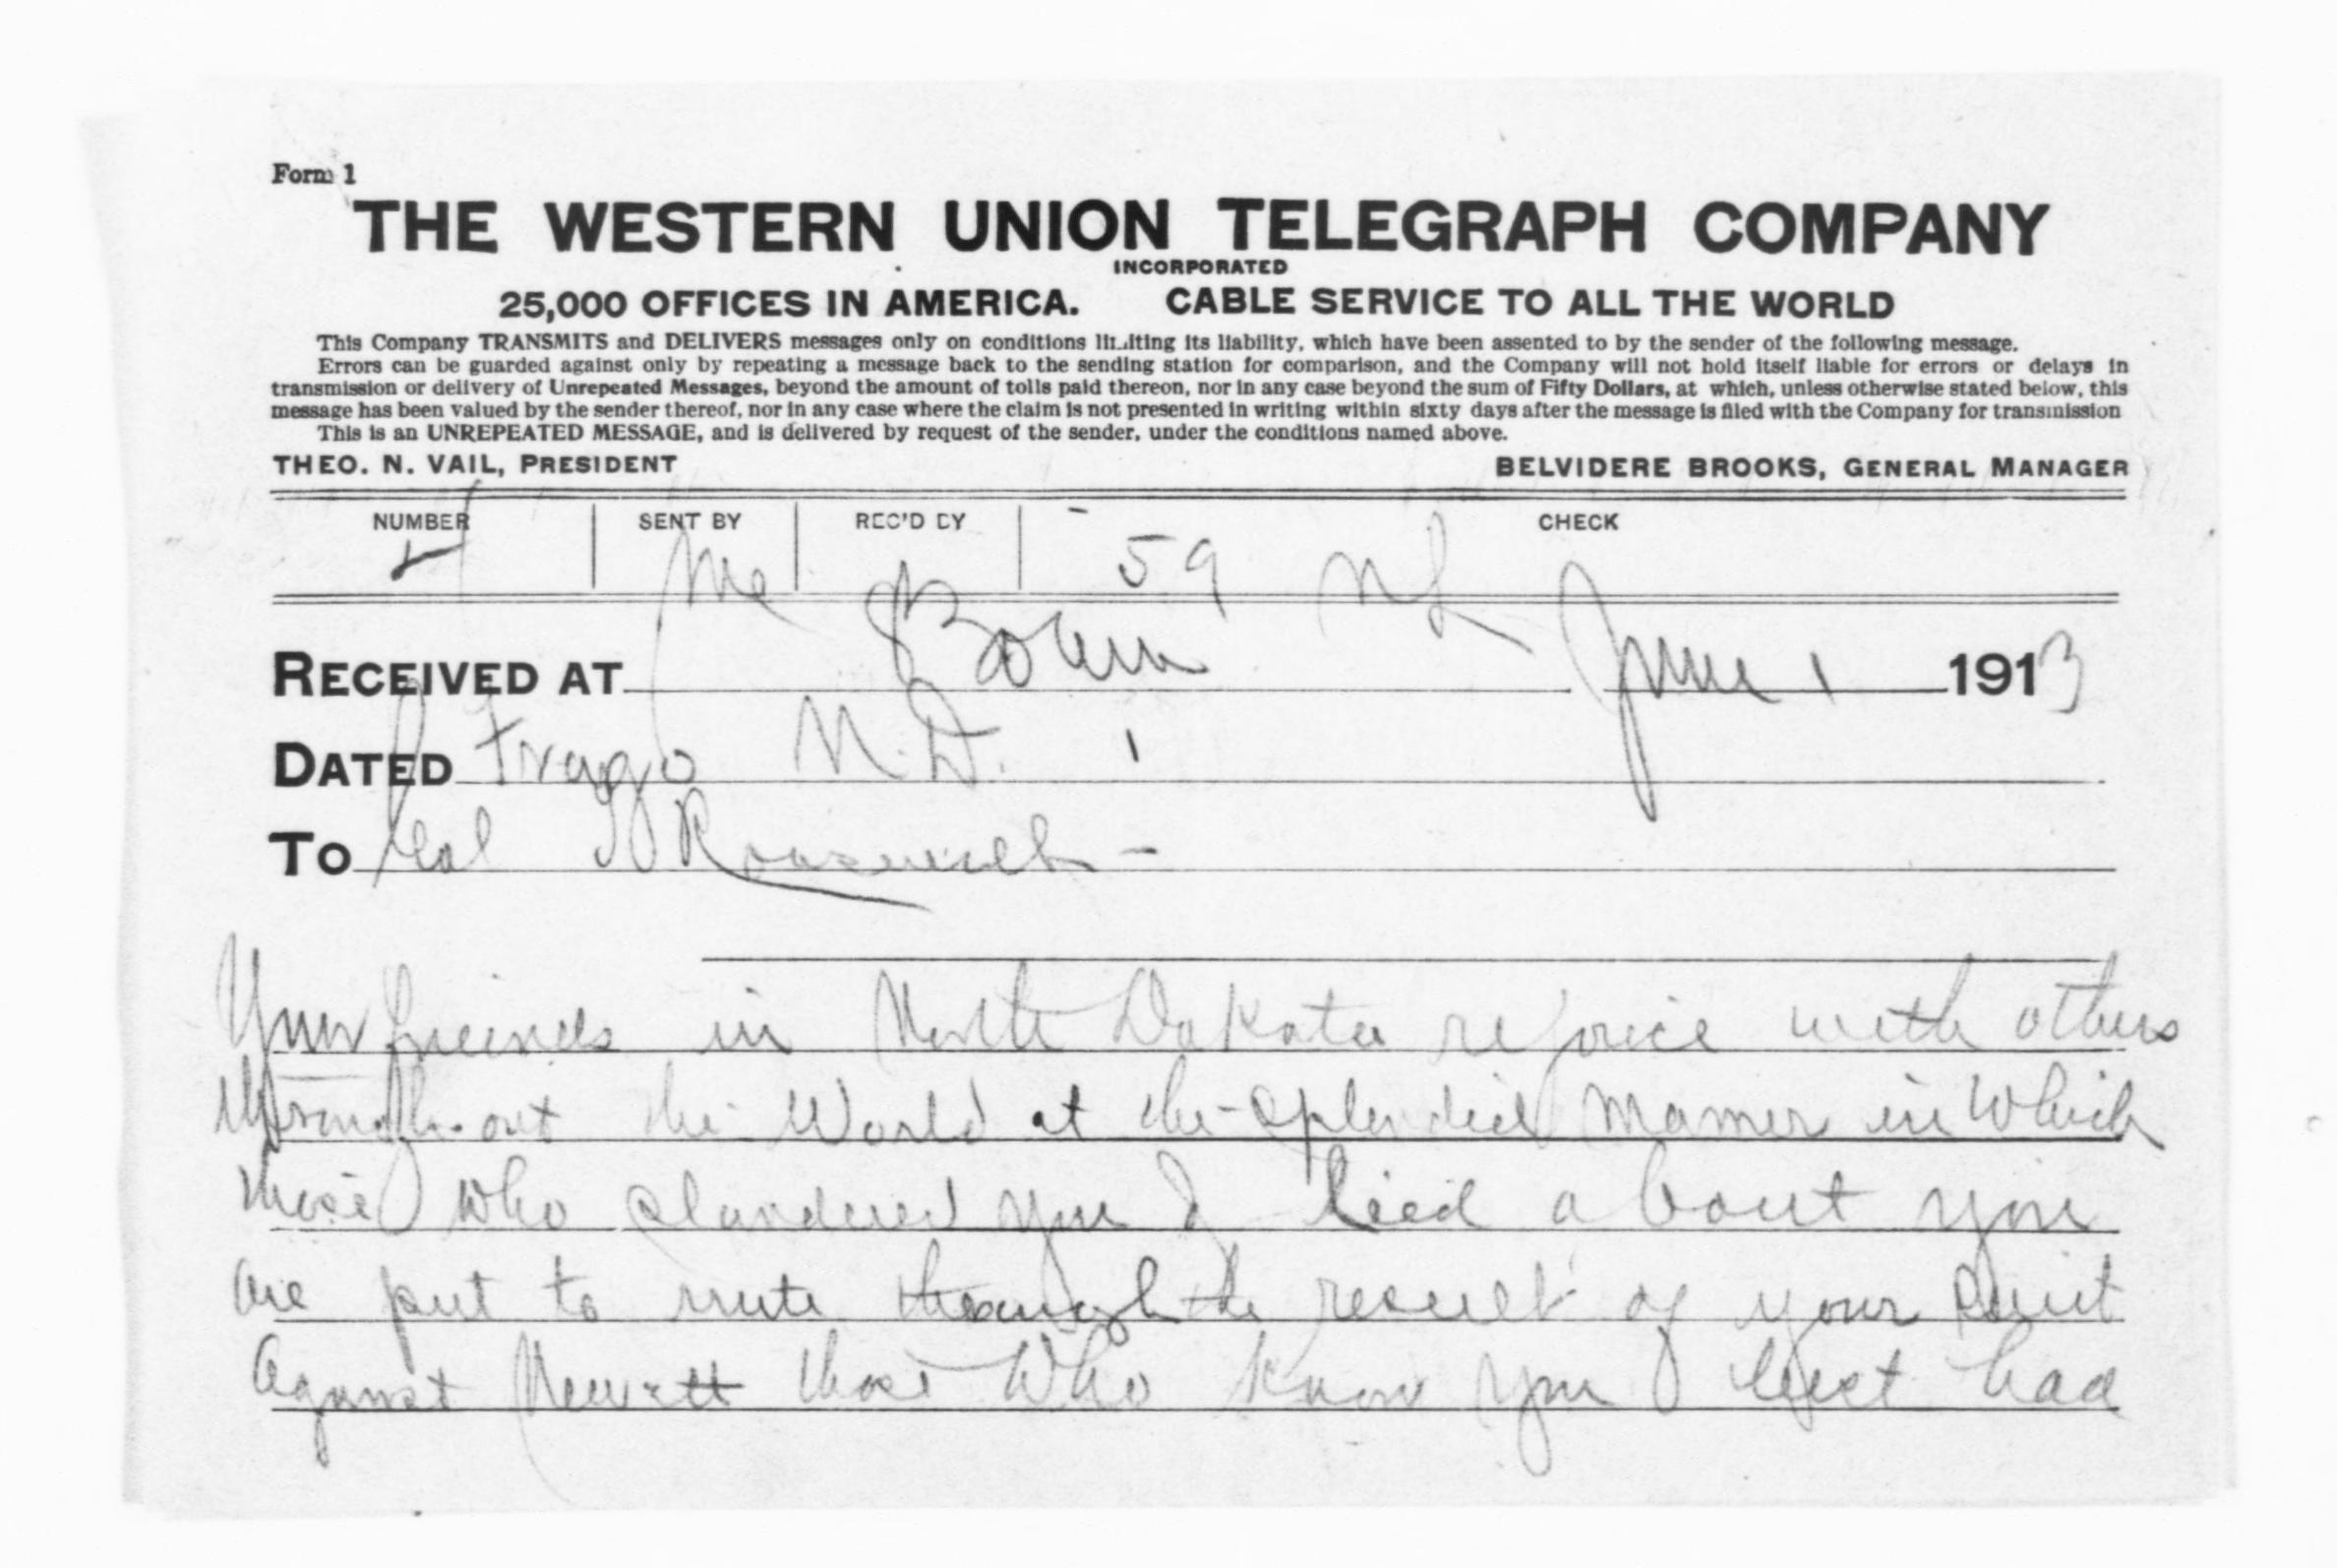 Form 1
THE WESTERN UNION TELEGRAPH COMPANY
INCORPORATED
25,000 OFFICES IN AMERICA. CABLE SERVICE TO ALL THE WORLD
This Company TRANSMITS and DELIVERS messages only on conditions limiting its liability, which have been assented to by the sender of the following message.
Errors can be guarded against only by repeating a message back to the sending station for comparison, and the Company will not hold itself liable for errors or delays in
transmission or delivery of Unrepeated Messages, beyond the amount of tolls paid thereon, nor in any case beyond the sum of Fifty Dollars, at which, unless otherwise stated below, this
message has been valued by the sender thereof, nor in any case where the claim is not presented in writing within sixty days after the message is filed with the Company for transmission
This is an UNREPEATED MESSAGE, and is delivered by request of the sender, under the conditions named above.
THEO. N. VAIL, PRESIDENT BELVIDERE BROOKS, GENERAL MANAGER
NUMBER SENT BY REC'D BY CHECK
59 NL
RECEIVED AT June 1 1913
DATED Frago N.D. 1
TO Col Roosevelt -
Your friends in North Dakota rejoice with others
through-out the World at the splendid manner in which
those who slandered you & lied about you
are put to route through the result of your suit
Against Newett those who know you best had